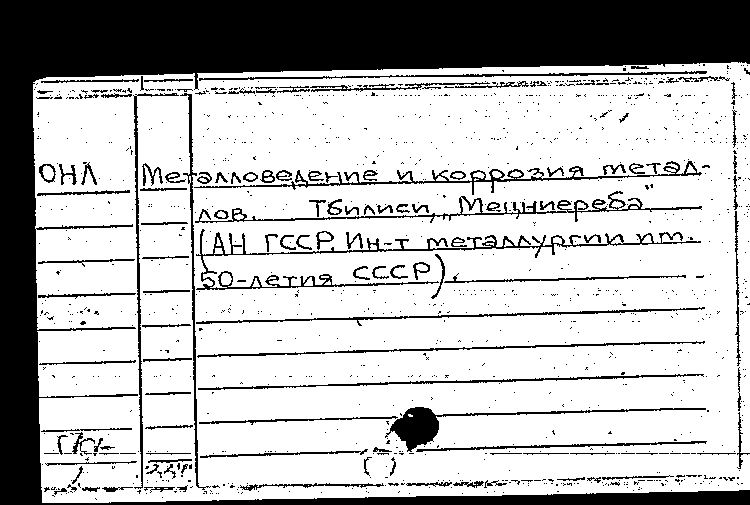 ОНЛ Металловедение и коррозия метал-
лов. Тбилиси, „Мецниереба"
(АН ГССР. Ин-т металлургии им.
50-летия СССР).